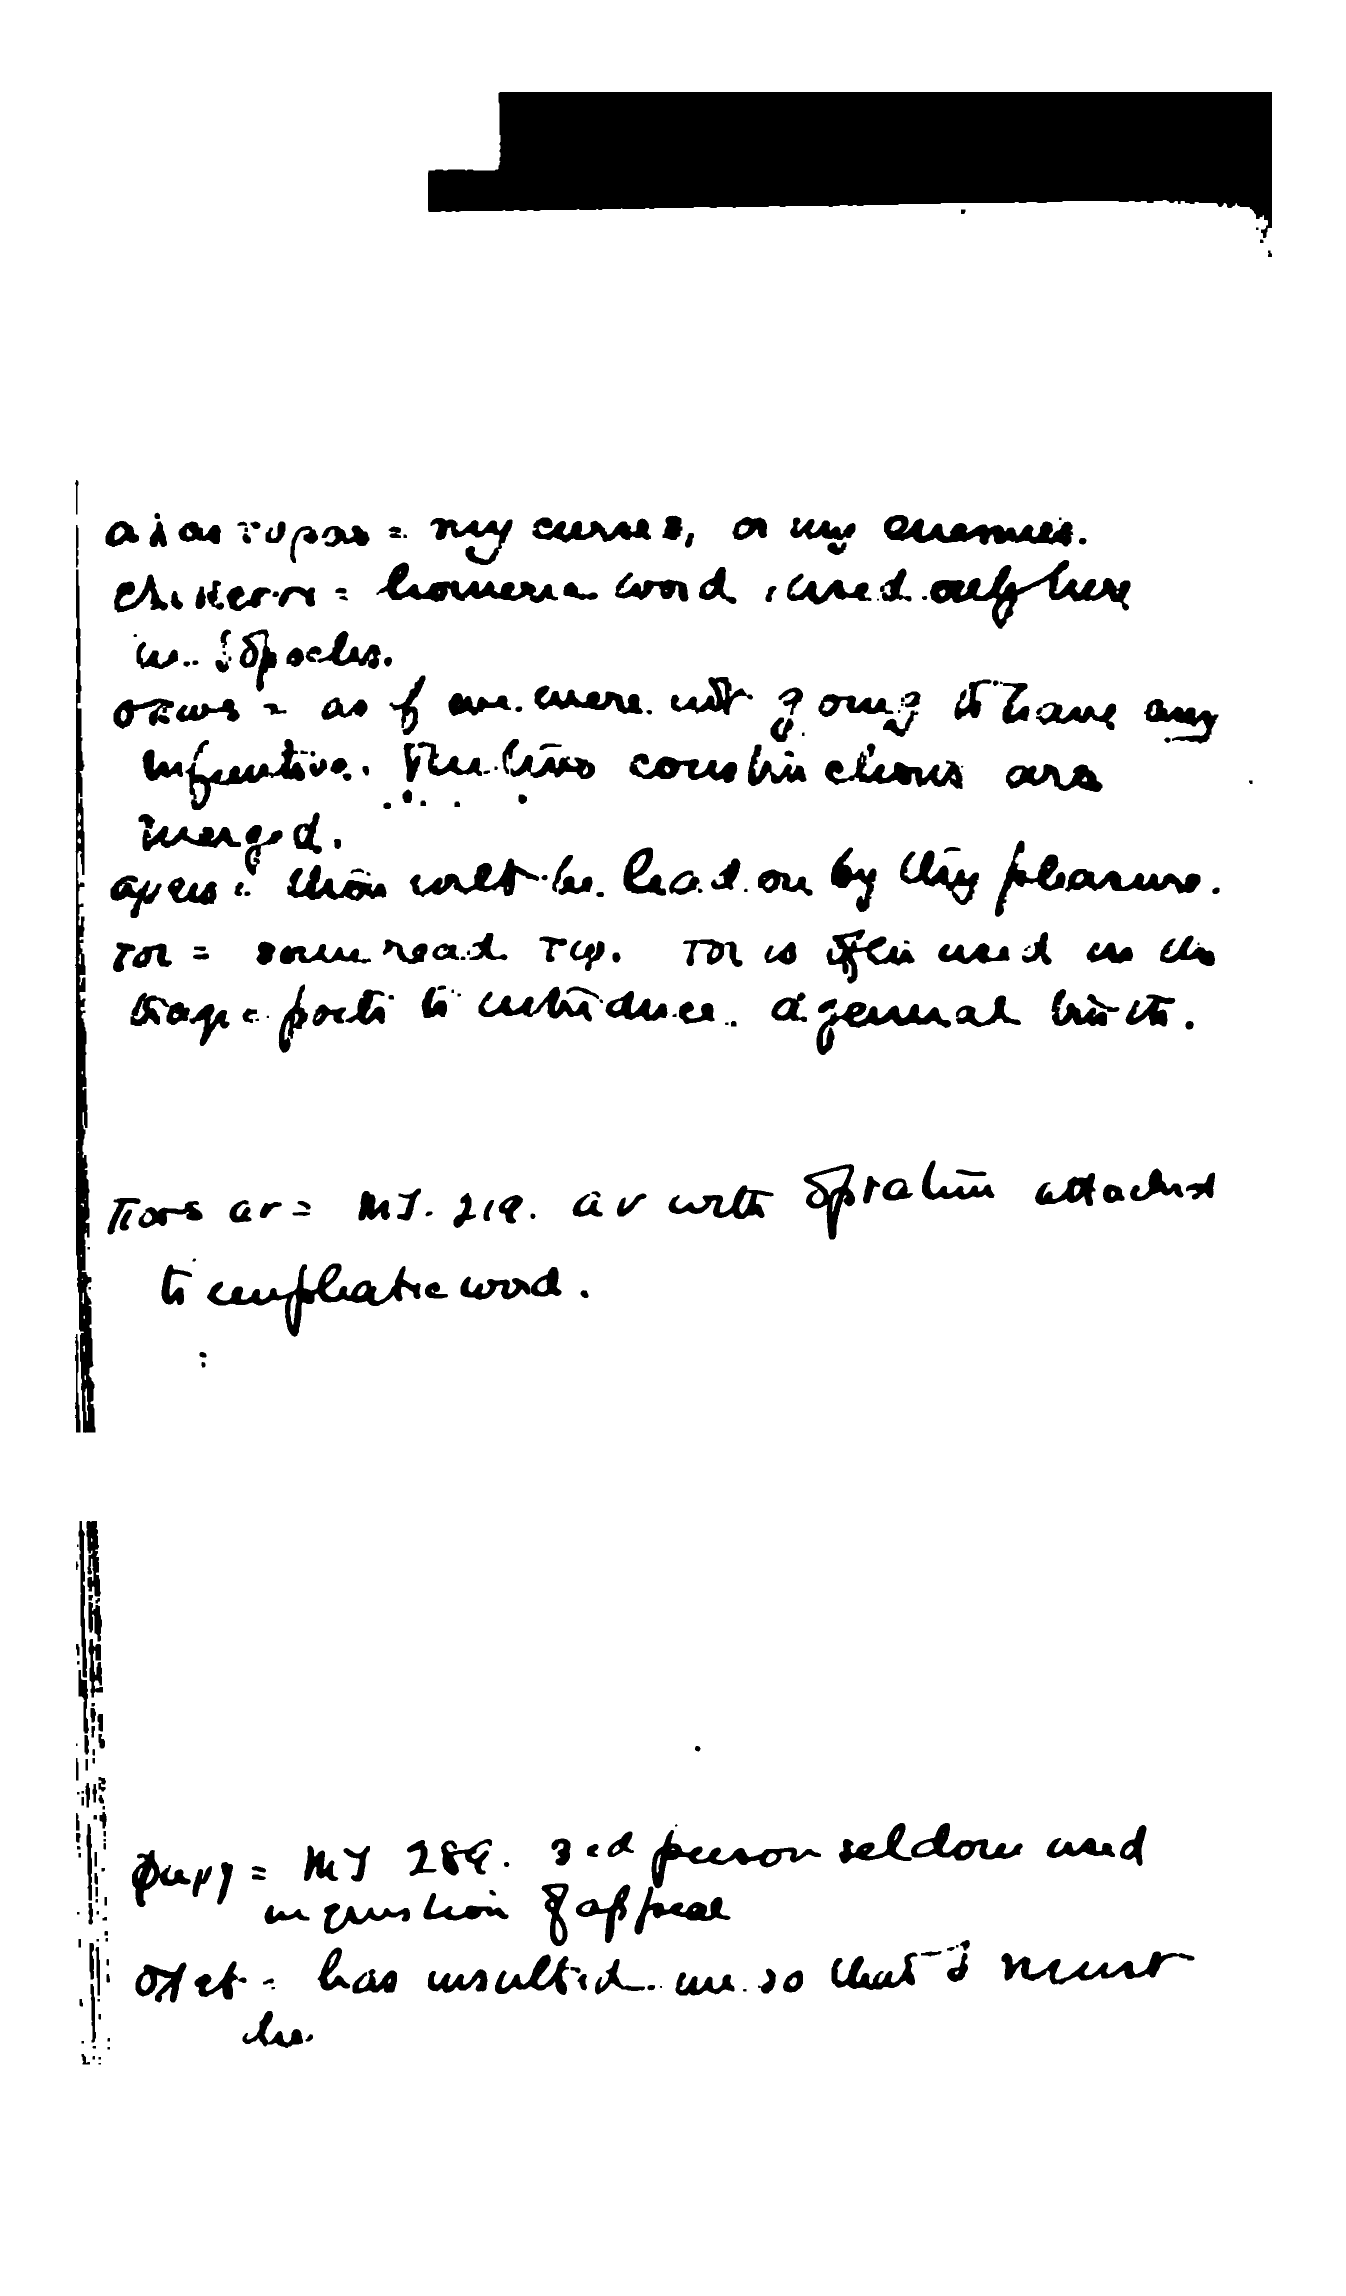 αλαστορας = my curses, or my enemies.
= homeric word, used only here
in Sophocles.
οπως = as if we were not going to have any
infinitive. The two constructions are
merged.
αρεις : thou wilt be lead on by thy pleasure.
τοι = some read τω. τοι is often used in the
tragic poets to introduce a general truth.
πως αν = MT. 219. αν with optative attached
to emphatic word.
φυγη = MT 289. 3rd person seldom used
in question of appeal
= has insulted me so that I must
be